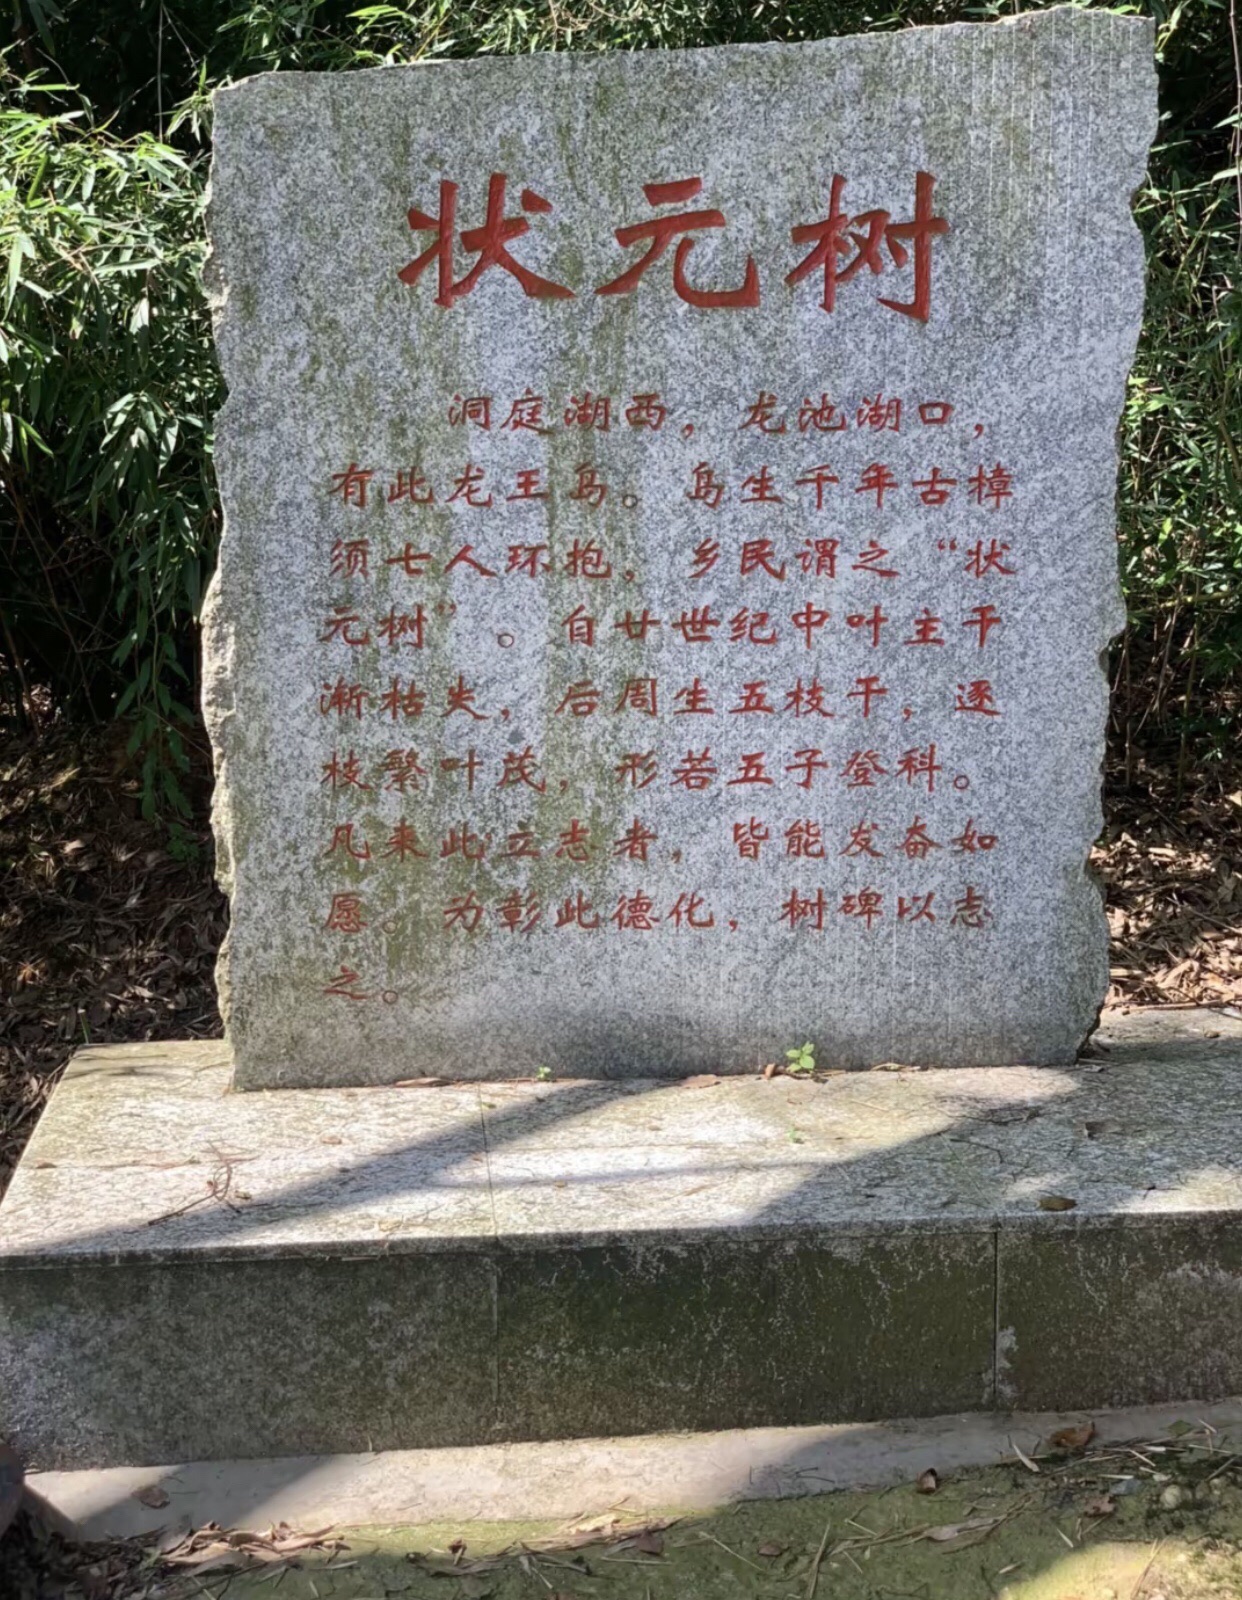 状元树
洞庭湖西，龙池湖口，
有此龙王岛。岛生千年古樟
须七人环抱，乡民谓之“状
元树”。自廿世纪中叶主干
渐枯失，后周生五枝干，逐
枝繁叶茂，形若五子登科。
凡来此立志者，皆能发奋如
愿。为彰此德化，树碑以志
之。